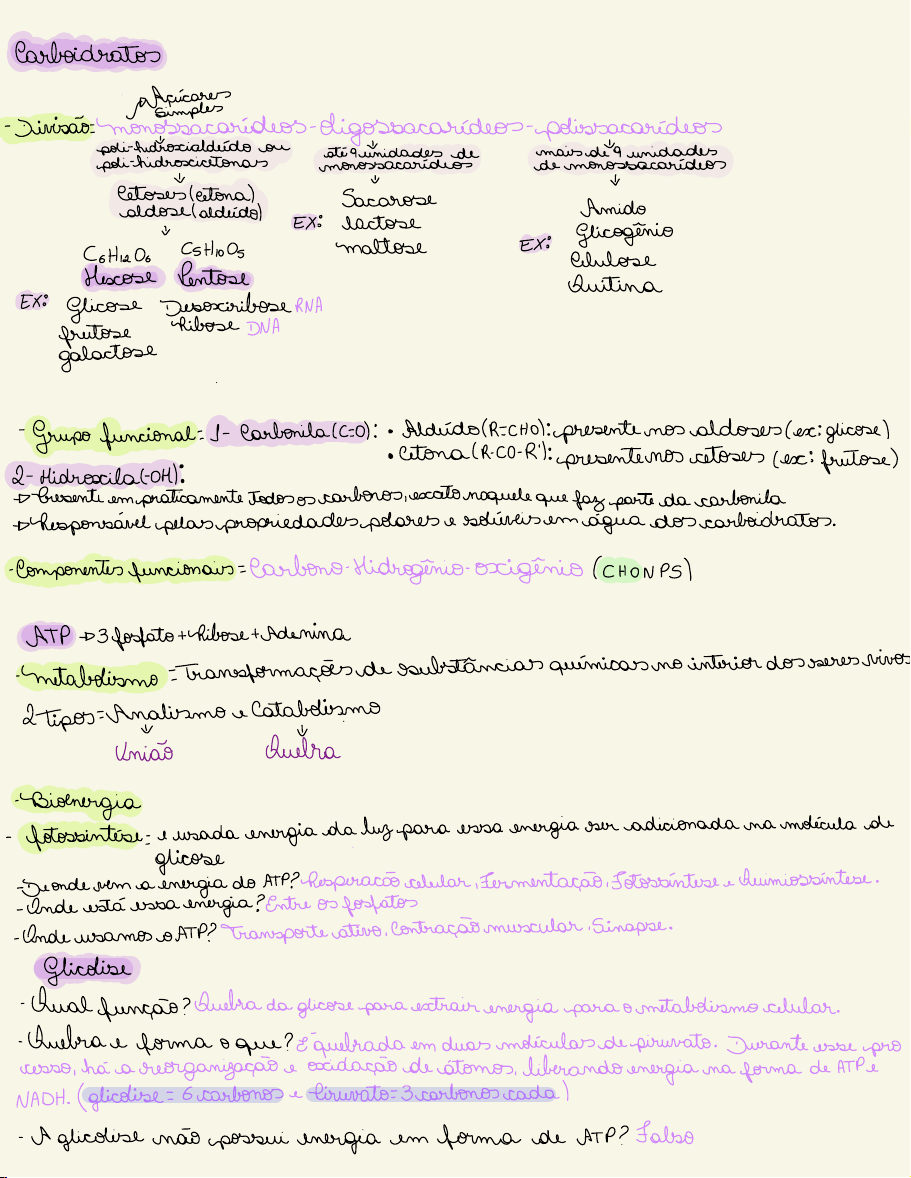 Carboidratos
Açúcares
simples
-Divisão= monossacarídeos-oligossacarídeos-polissacarídeos
poli-hidroxialdeído ou
poli-hidroxicetonas
até 9 unidades de
monossacarídeos
mais de 9 unidades
de monossacarídeos
Cetoses (cetona)
aldose (aldeído)
EX:
Sacarose
lactose
maltose
EX:
Amido
Glicogênio
Celulose
Quitina
C6H12O6 C5H10O5
Hexose Pentose
EX: Glicose Desoxiribose RNA
frutose Ribose DNA
galactose
- Grupo funcional= 1- Carbonila (C=O): • Aldeído (R=CHO): presente nos aldoses (ex: glicose)
• Cetona (R-CO-R'): presente nos cetoses (ex: frutose)
2- Hidroxila (-OH):
→ Presente em praticamente todos os carbonos, exceto naquele que faz parte da carbonila
→ Responsável pelas propriedades polares e solúveis em água dos carboidratos.
-Componentes funcionais = Carbono-Hidrogênio-oxigênio (CHONPS)
ATP → 3 fosfato + Ribose + Adenina
-metabolismo = Transformações de substâncias químicas no interior dos seres vivos
2 tipos= Analismo e Catabolismo
União Quebra
-Bioenergia
- fotossíntese= e usada energia da luz para essa energia ser adicionada na molécula de
glicose
-De onde vem a energia do ATP? Respiração celular, Fermentação, Fotossíntese e Quimiossíntese.
-Onde está essa energia? Entre os fosfatos
-Onde usamos o ATP? Transporte ativo, Contração muscular, Sinapse.
Glicolise
- Qual função? Quebra da glicose para extrair energia para o metabolismo celular.
- Quebra e forma o que? É quebrada em duas moléculas de piruvato. Durante esse pro
cesso, há a reorganização e oxidação de átomos, liberando energia na forma de ATP e
NADH. (glicolise = 6 carbonos e Piruvato= 3 carbonos cada)
- A glicolise não possui energia em forma de ATP? Falso